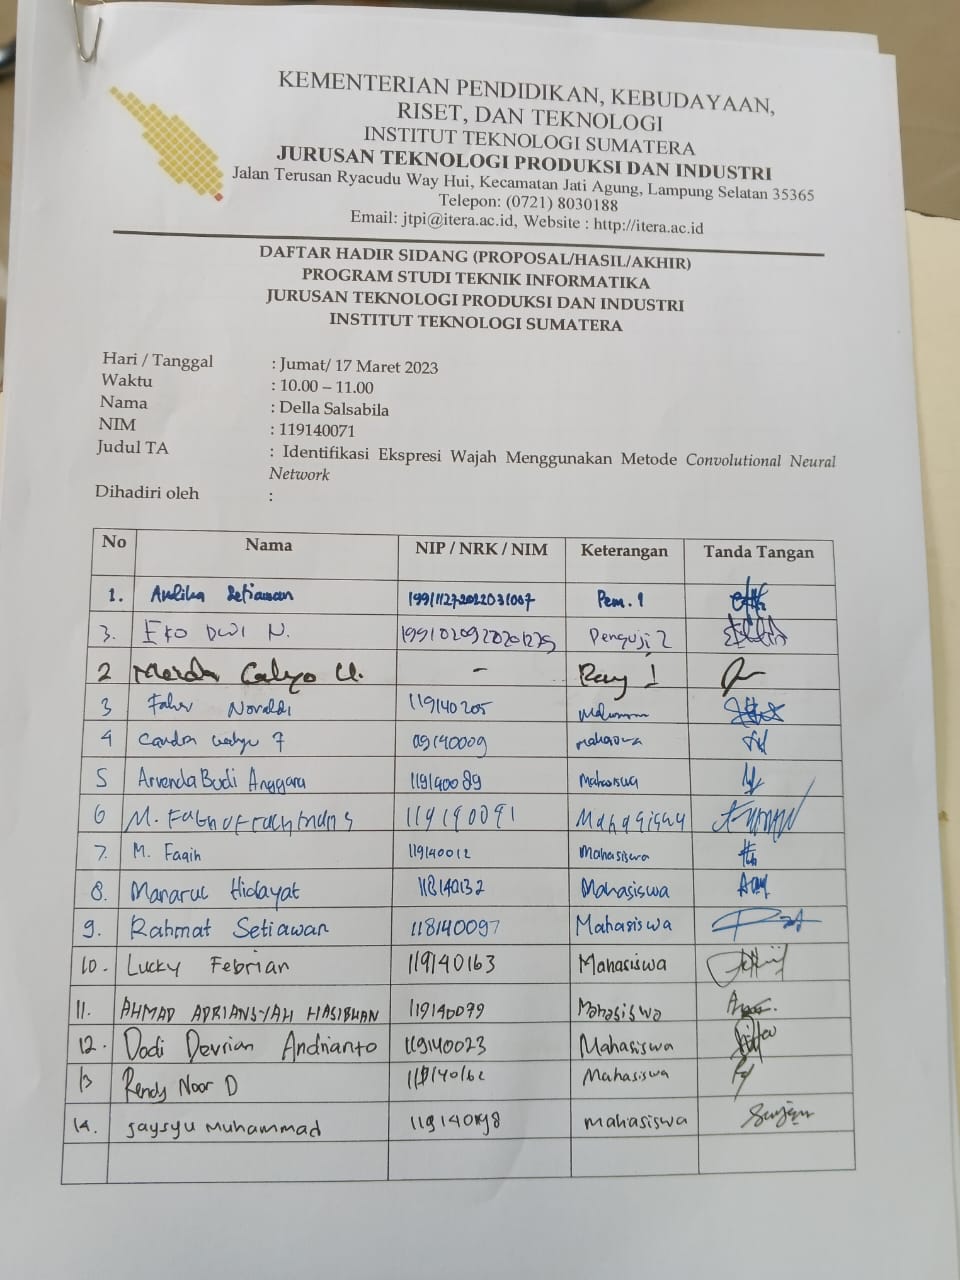 KEMENTERIAN PENDIDIKAN, KEBUDAYAAN,
RISET, DAN TEKNOLOGI
INSTITUT TEKNOLOGI SUMATERA
JURUSAN TEKNOLOGI PRODUKSI DAN INDUSTRI
Jalan Terusan Ryacudu Way Hui, Kecamatan Jati Agung, Lampung Selatan 35365
Telepon: (0721) 8030188
Email: jtpi@itera.ac.id, Website : http://itera.ac.id
DAFTAR HADIR SIDANG (PROPOSAL/HASIL/AKHIR)
PROGRAM STUDI TEKNIK INFORMATIKA
JURUSAN TEKNOLOGI PRODUKSI DAN INDUSTRI
INSTITUT TEKNOLOGI SUMATERA
Hari / Tanggal : Jumat/ 17 Maret 2023
Waktu : 10.00 – 11.00
Nama : Della Salsabila
NIM : 119140071
Judul TA : Identifikasi Ekspresi Wajah Menggunakan Metode Convolutional Neural
Network
Dihadiri oleh :
No Nama NIP / NRK / NIM Keterangan Tanda Tangan
1. Andika Setiawan 199111272022031007 Pem. 1
3. EKO DWI N. Penguji 2
2 -
3 Noraldi 119140205
4 mahasiswa
5 Arvenda Budi Anggara 119140089 mahasiswa
6 M. 119140091 Mahasiswa
7. M. Faqih 119140012 Mahasiswa
8. Manarul Hidayat 118140132 Mahasiswa
9. Rahmat Setiawan 118140097 Mahasiswa
10. Lucky Febrian 119140163 Mahasiswa
11. AHMAD ADRIANSYAH HASIBUAN 119140079 Mahasiswa
12. Dodi Devrian Andrianto 119140023 Mahasiswa
13 Rendy Noor D 119140162 Mahasiswa
14. Muhammad mahasiswa